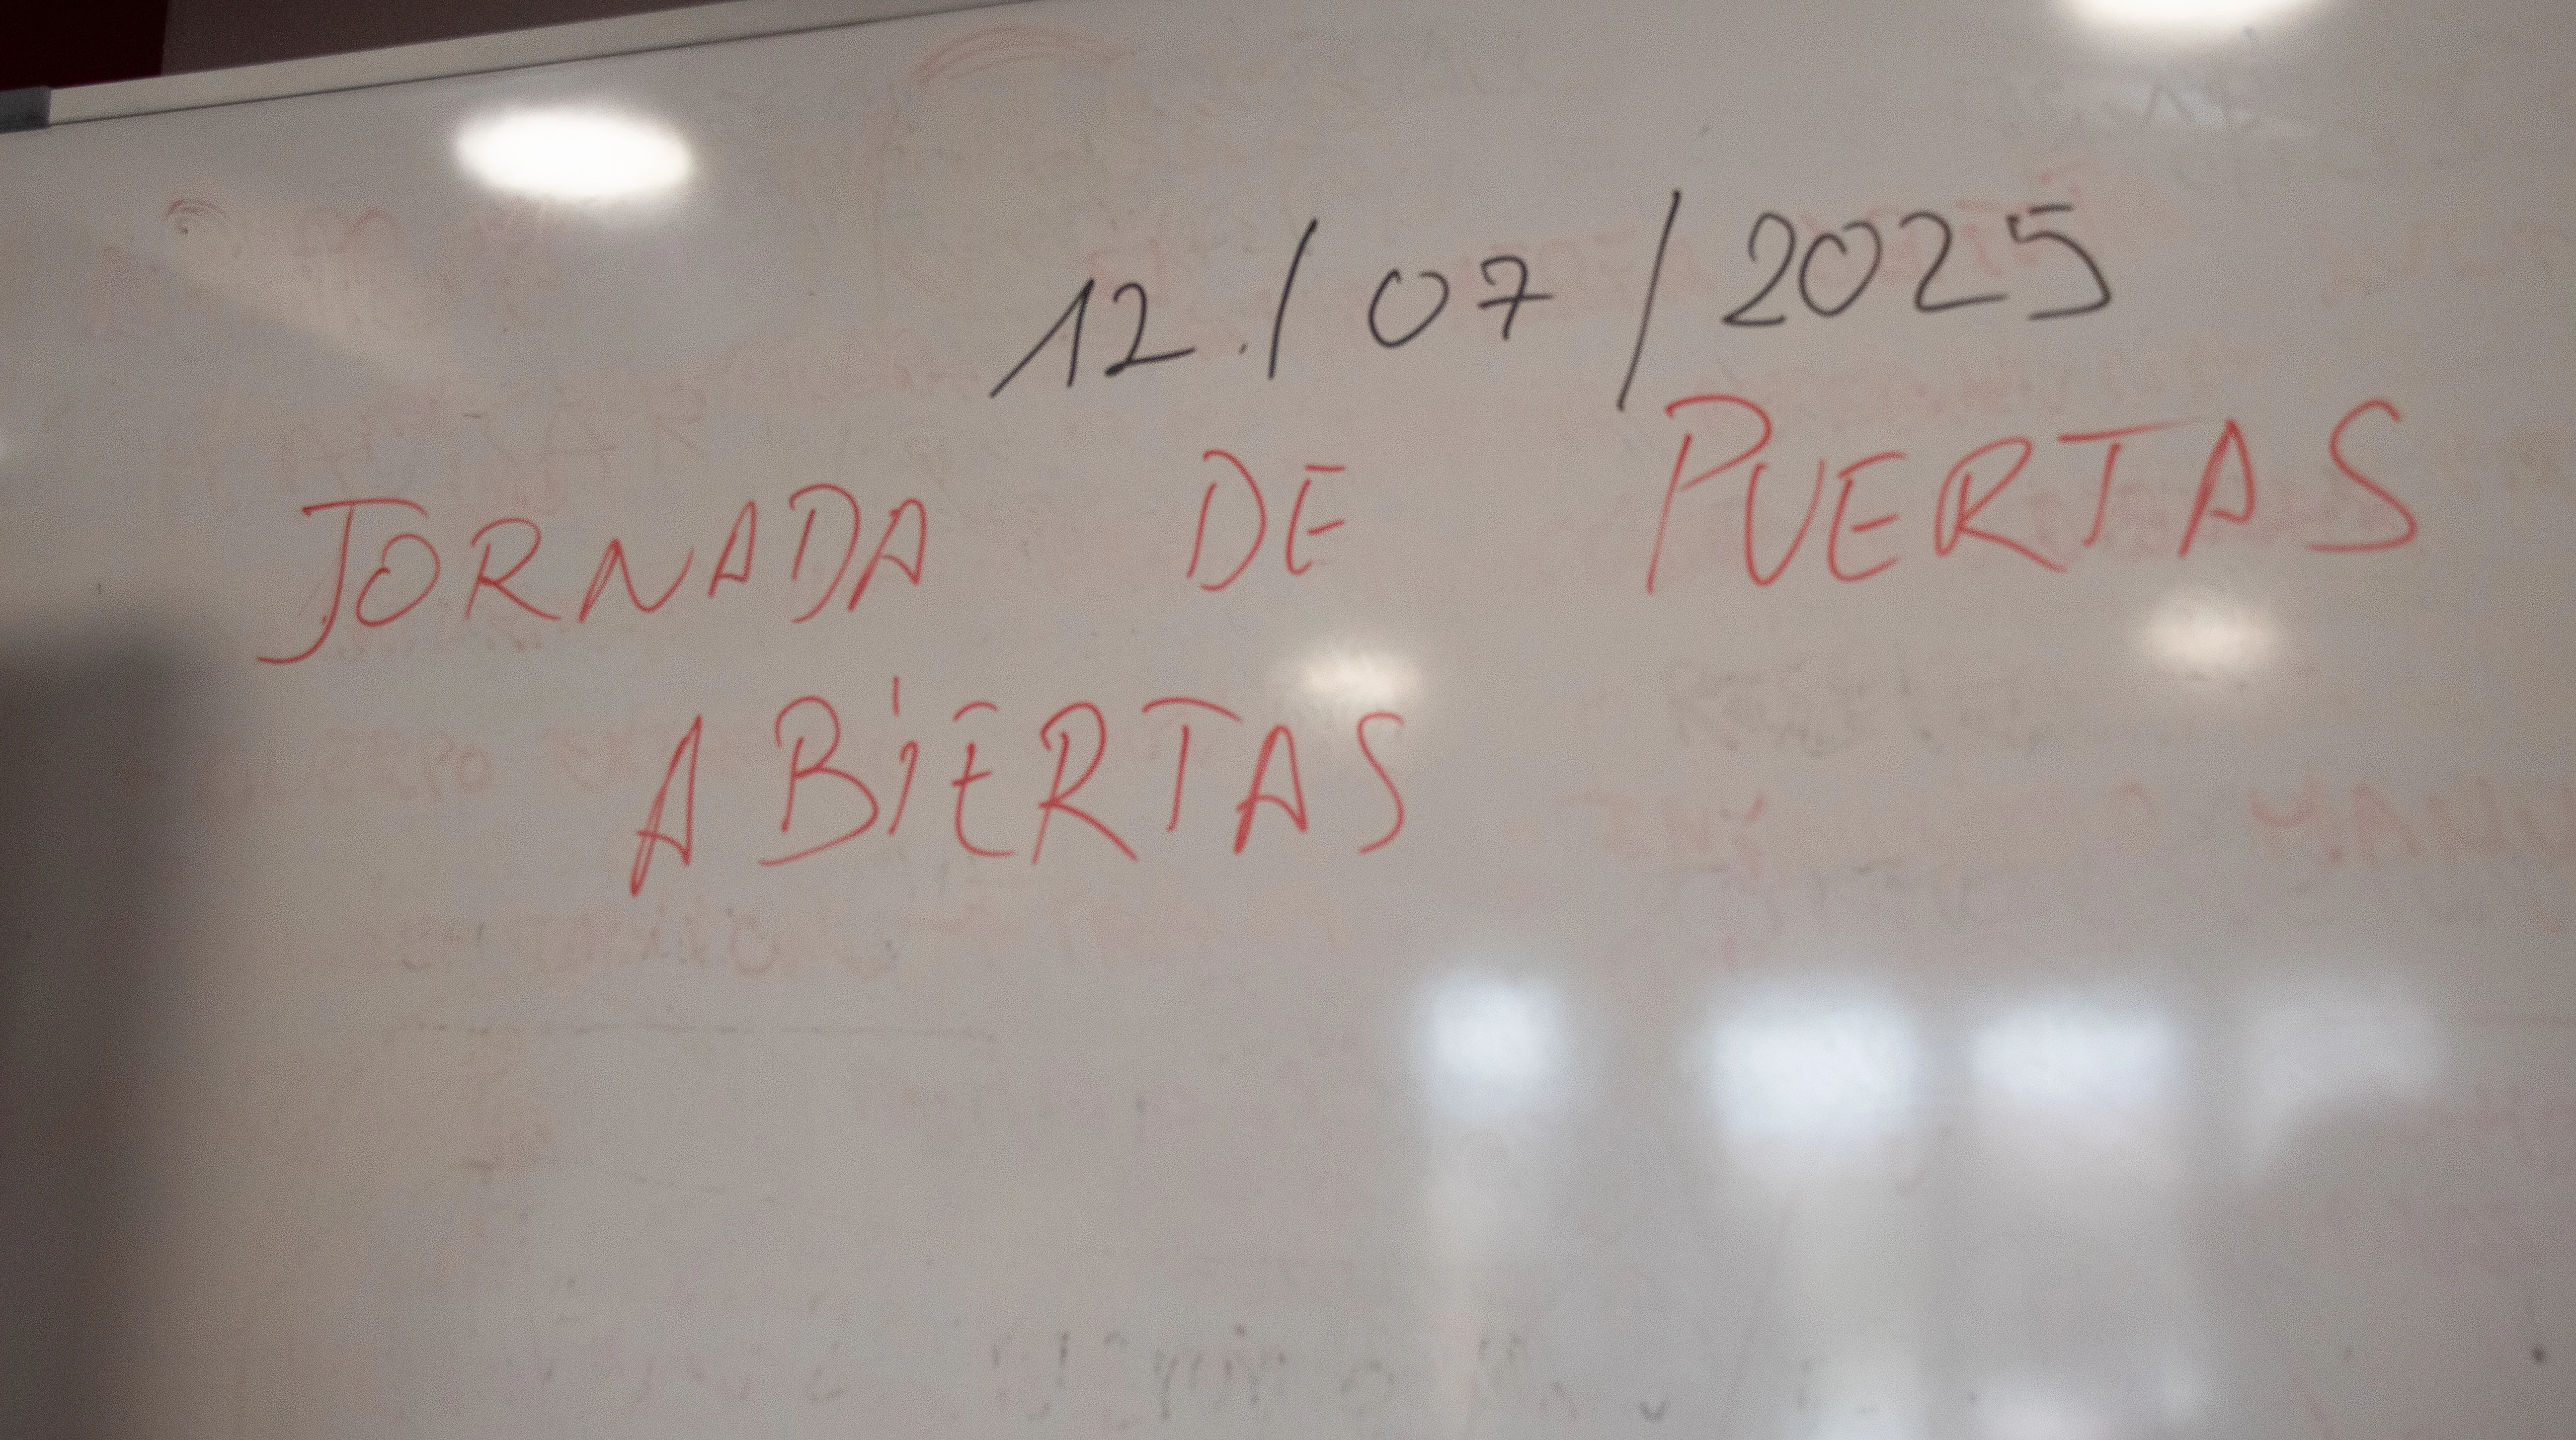 12./07/2025
JORNADA DE PUERTAS
ABiERTAS